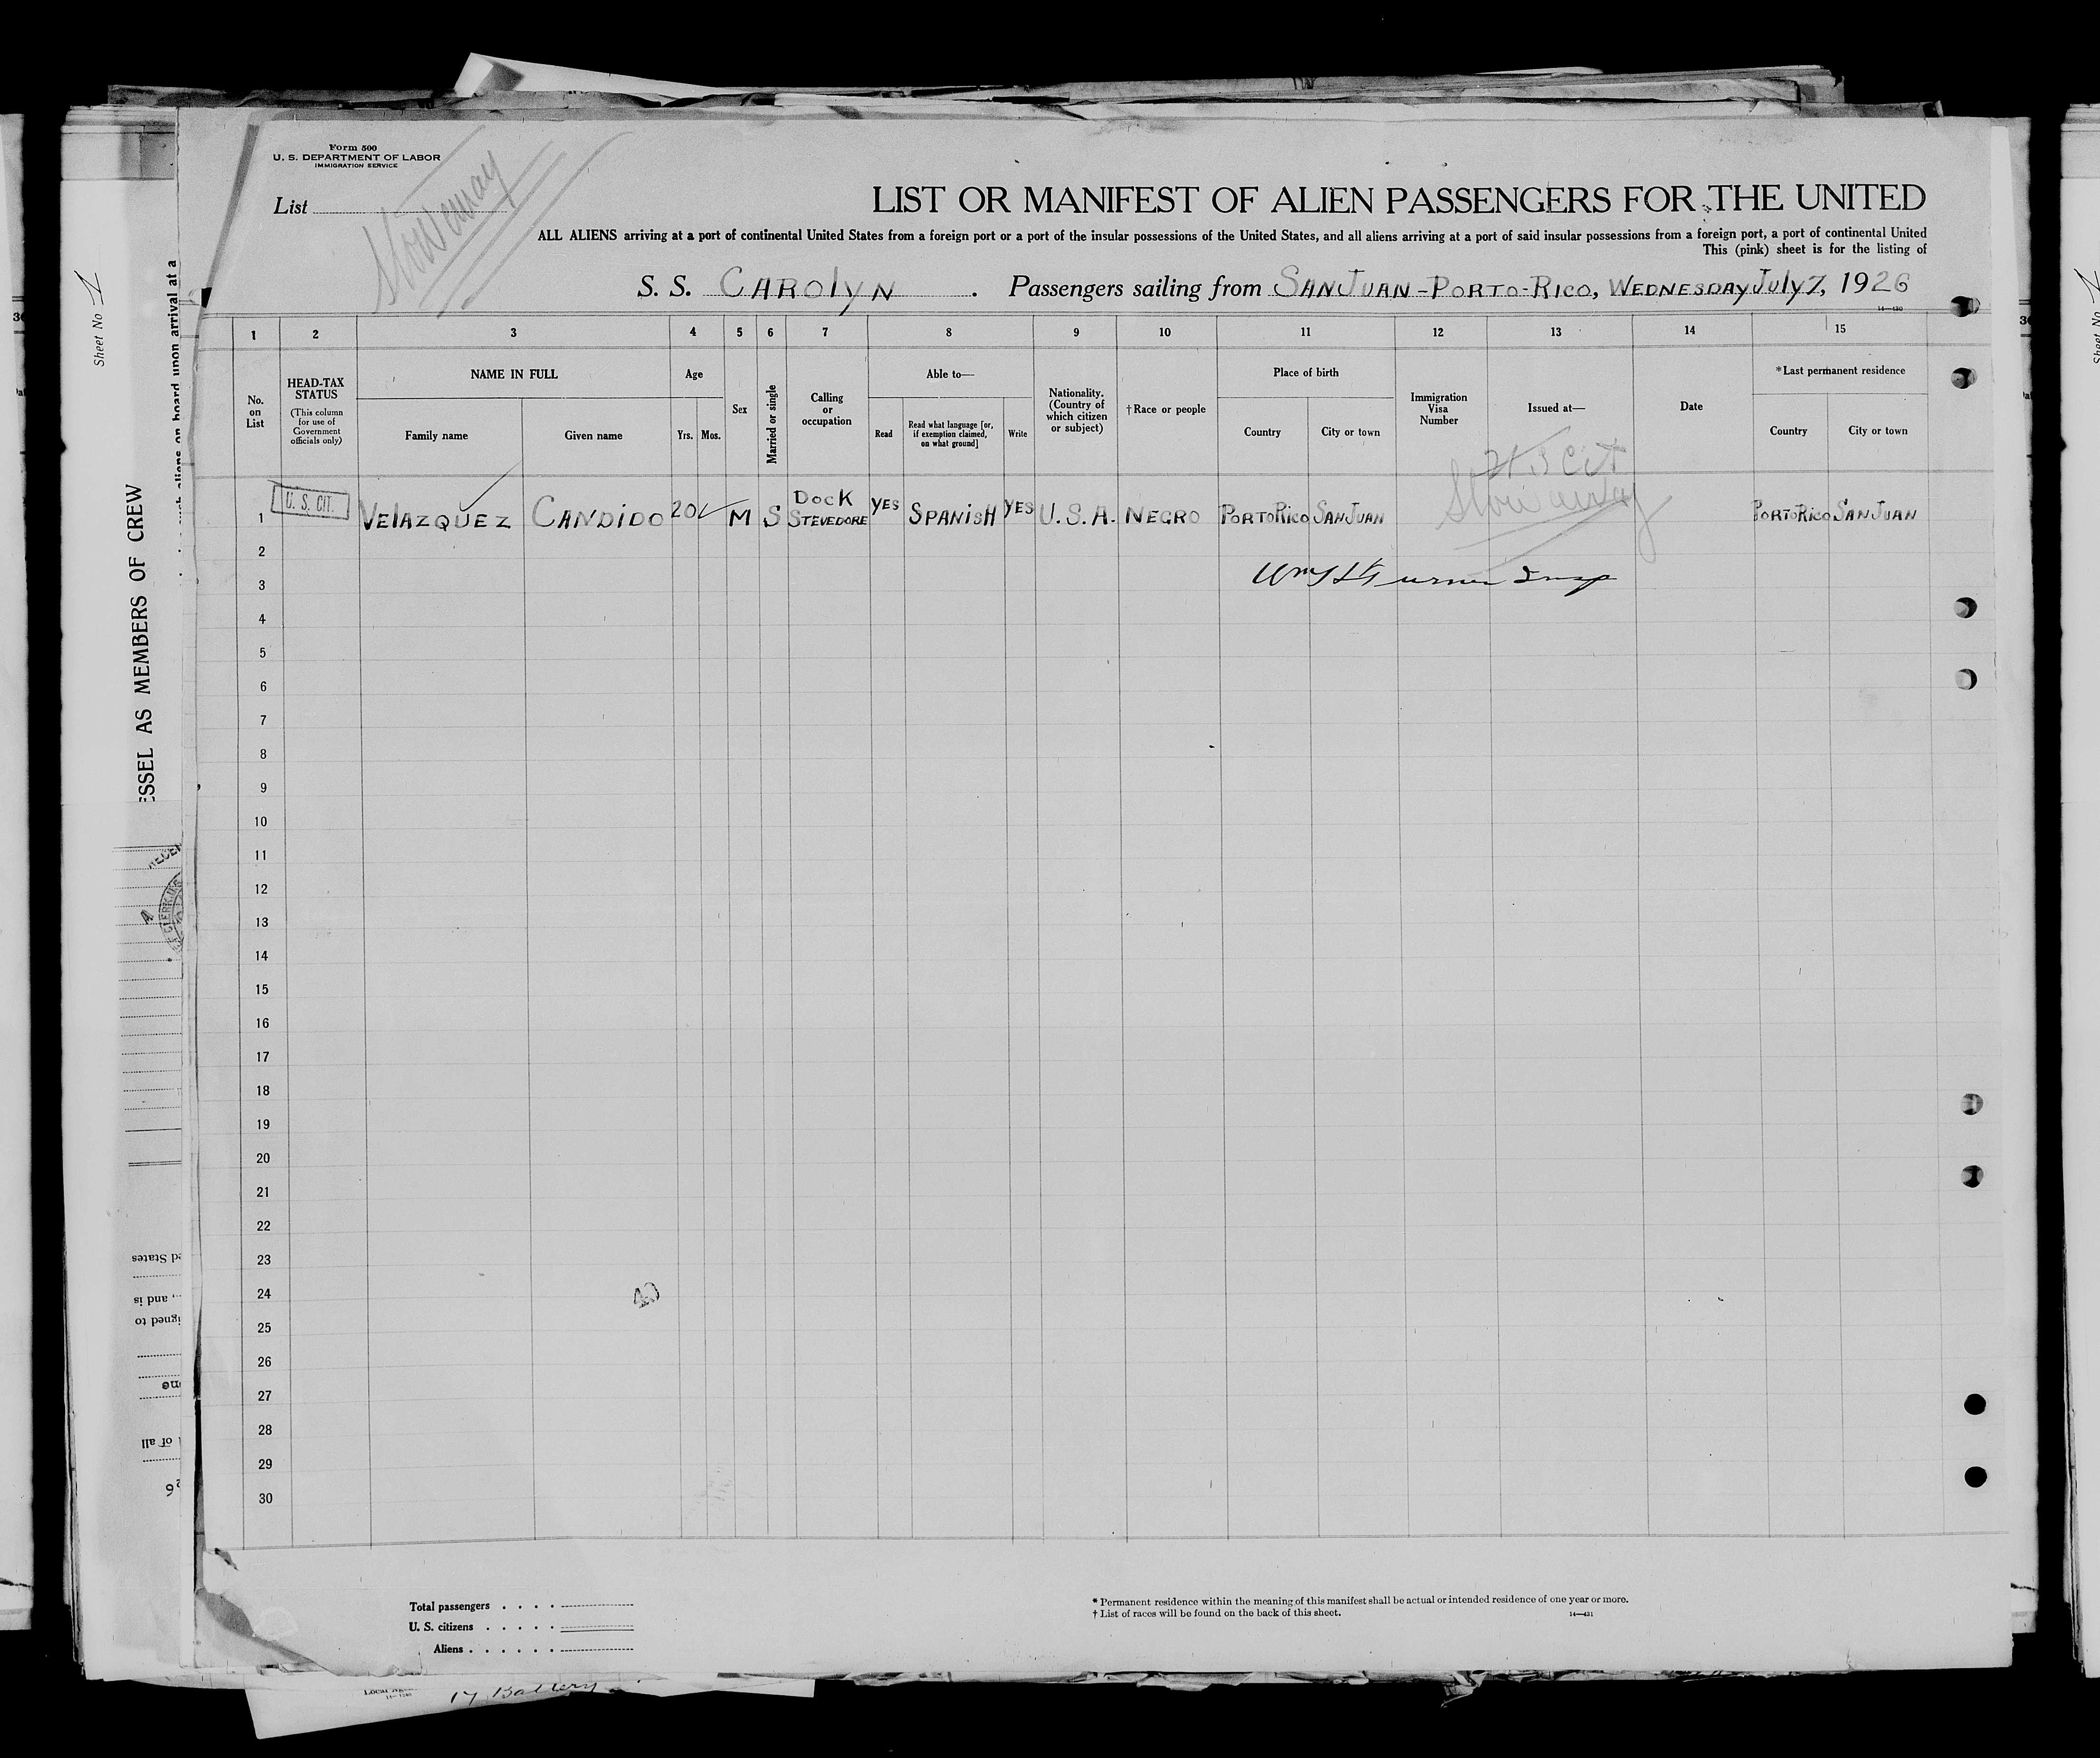 Form 500
U. S. DEPARTMENT OF LABOR
IMMIGRATION SERVICE
List
Stowaway
LIST OR MANIFEST OF ALIEN PASSENGERS FOR THE UNITED
ALL ALIENS arriving at a port of continental United States from a foreign port or a port of the insular possessions of the United States, and all aliens arriving at a port of said insular possessions from a foreign port, a port of continental United
This (pink) sheet is for the listing of
S. S. CAROLYN . Passengers sailing from SAN JUAN - PORTO-RICO, WEDNESDAY July 7, 1926
14—430
1 2 3 4 5 6 7 8 9 10 11 12 13 14 15
No. on List
HEAD-TAX STATUS
(This column for use of Government officials only)
NAME IN FULL
Family name Given name
Age
Yrs. Mos.
Sex
Married or single
Calling or occupation
Able to—
Read
Read what language [or, if exemption claimed, on what ground]
Write
Nationality. (Country of which citizen or subject)
† Race or people
Place of birth
Country City or town
Immigration Visa Number
Issued at—
Date
* Last permanent residence
Country City or town
U S Cit
Stowaway
1 U. S. CIT. VELAZQUEZ CANDIDO 20 M S DOCK STEVEDORE YES SPANISH YES U.S.A. NEGRO PORTO RICO SAN JUAN PORTO RICO SAN JUAN
2
3
4
5
6
7
8
9
10
11
12
13
14
15
16
17
18
19
20
21
22
23
24
25
26
27
28
29
30
Total passengers
U. S. citizens
Aliens
* Permanent residence within the meaning of this manifest shall be actual or intended residence of one year or more.
† List of races will be found on the back of this sheet.
14—431
Sheet No 1
ESSEL AS MEMBERS OF CREW
such aliens on board upon arrival at a
ed States
, and is
igned to
of all
17 Battery